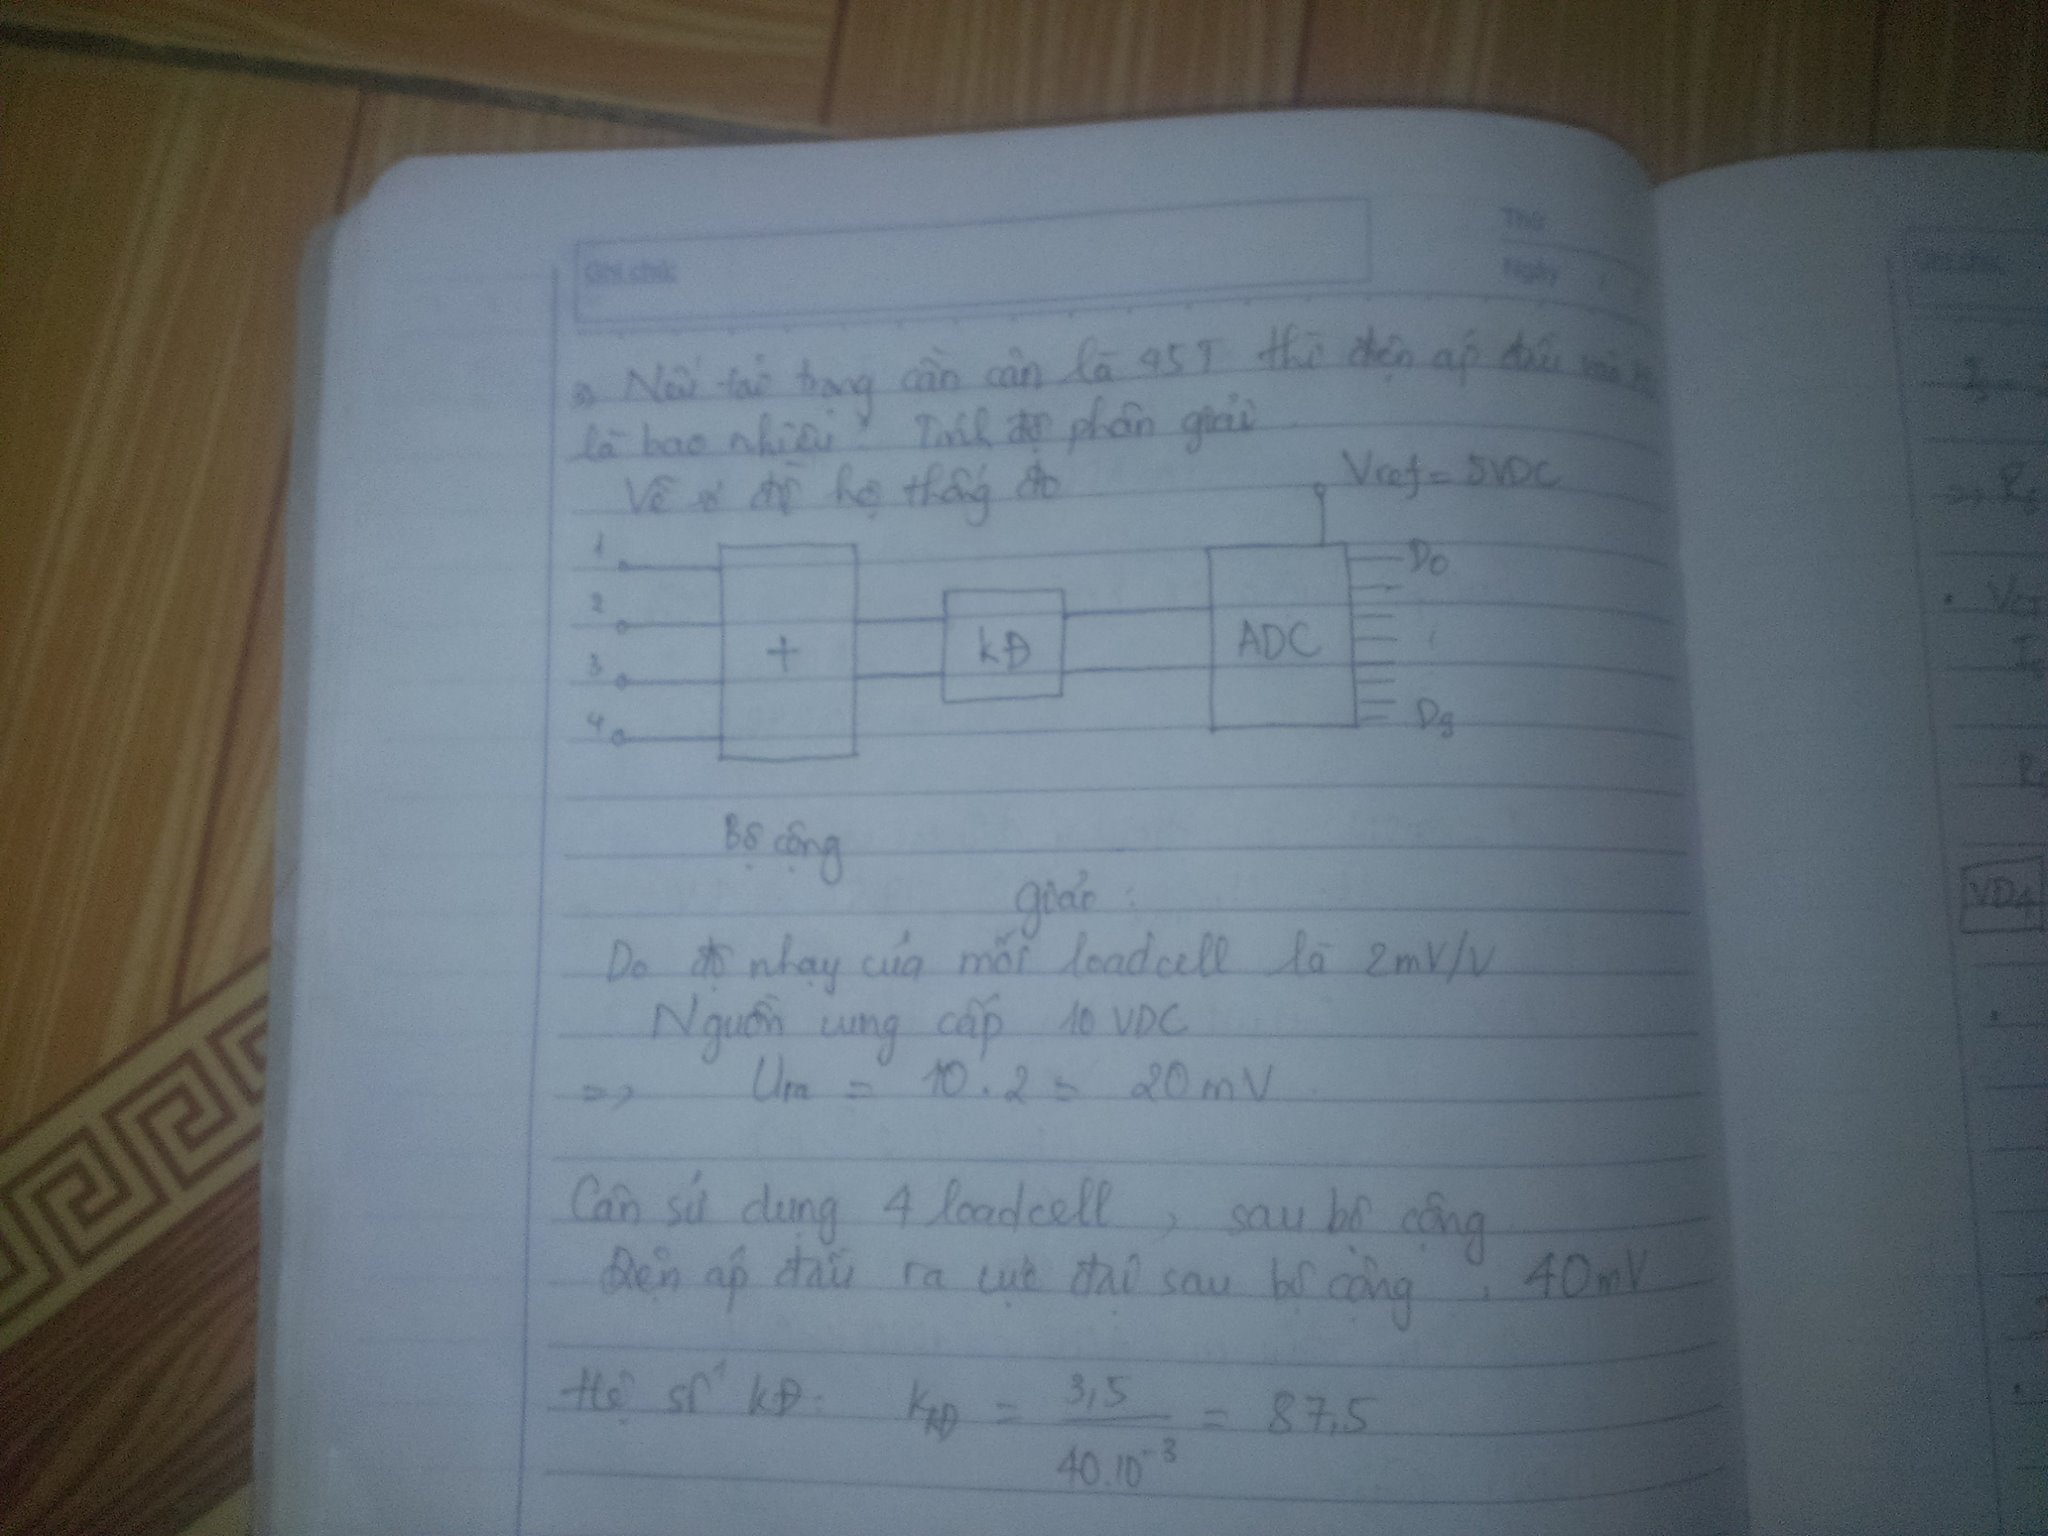 Ghi chú:
Thứ
Ngày
=> Nếu tải trọng cần cân là 45T thì điện áp đầu
là bao nhiêu? Tính độ phân giải
Vẽ sơ đồ hệ thống đo
Vref = 5VDC
1
2
3
4
+
KĐ
ADC
D0
D9
Bộ cộng
Giải:
Do độ nhạy của mỗi loadcell là 2mV/V
Nguồn cung cấp 10 VDC
=> Ura = 10.2 = 20mV
Cân sử dụng 4 loadcell, sau bộ cộng
Điện áp đầu ra cực đại sau bộ cộng, 40mV
Hệ số KĐ: KKĐ = 3,5 / 40.10-3 = 87,5
VD4